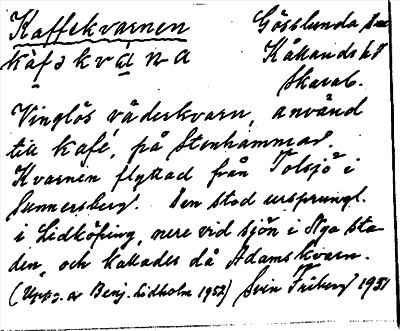 Kaffekvarnen
Gösslunda sn
kàfəkvá̱ṇa
Kållands hd
Skarab.
Vinglös väderkvarn, använd
till kafé, på Stenhammar.
Kvarnen flyttad från Tolsjö i
Sunnersberg. Den stod ursprungl.
i Lidköping, nere vid sjön i Nya sta-
den, och kallades då Adamskvarn.
(Uppg. av Benj. Lidholm 1952) Svin Friberg 1951